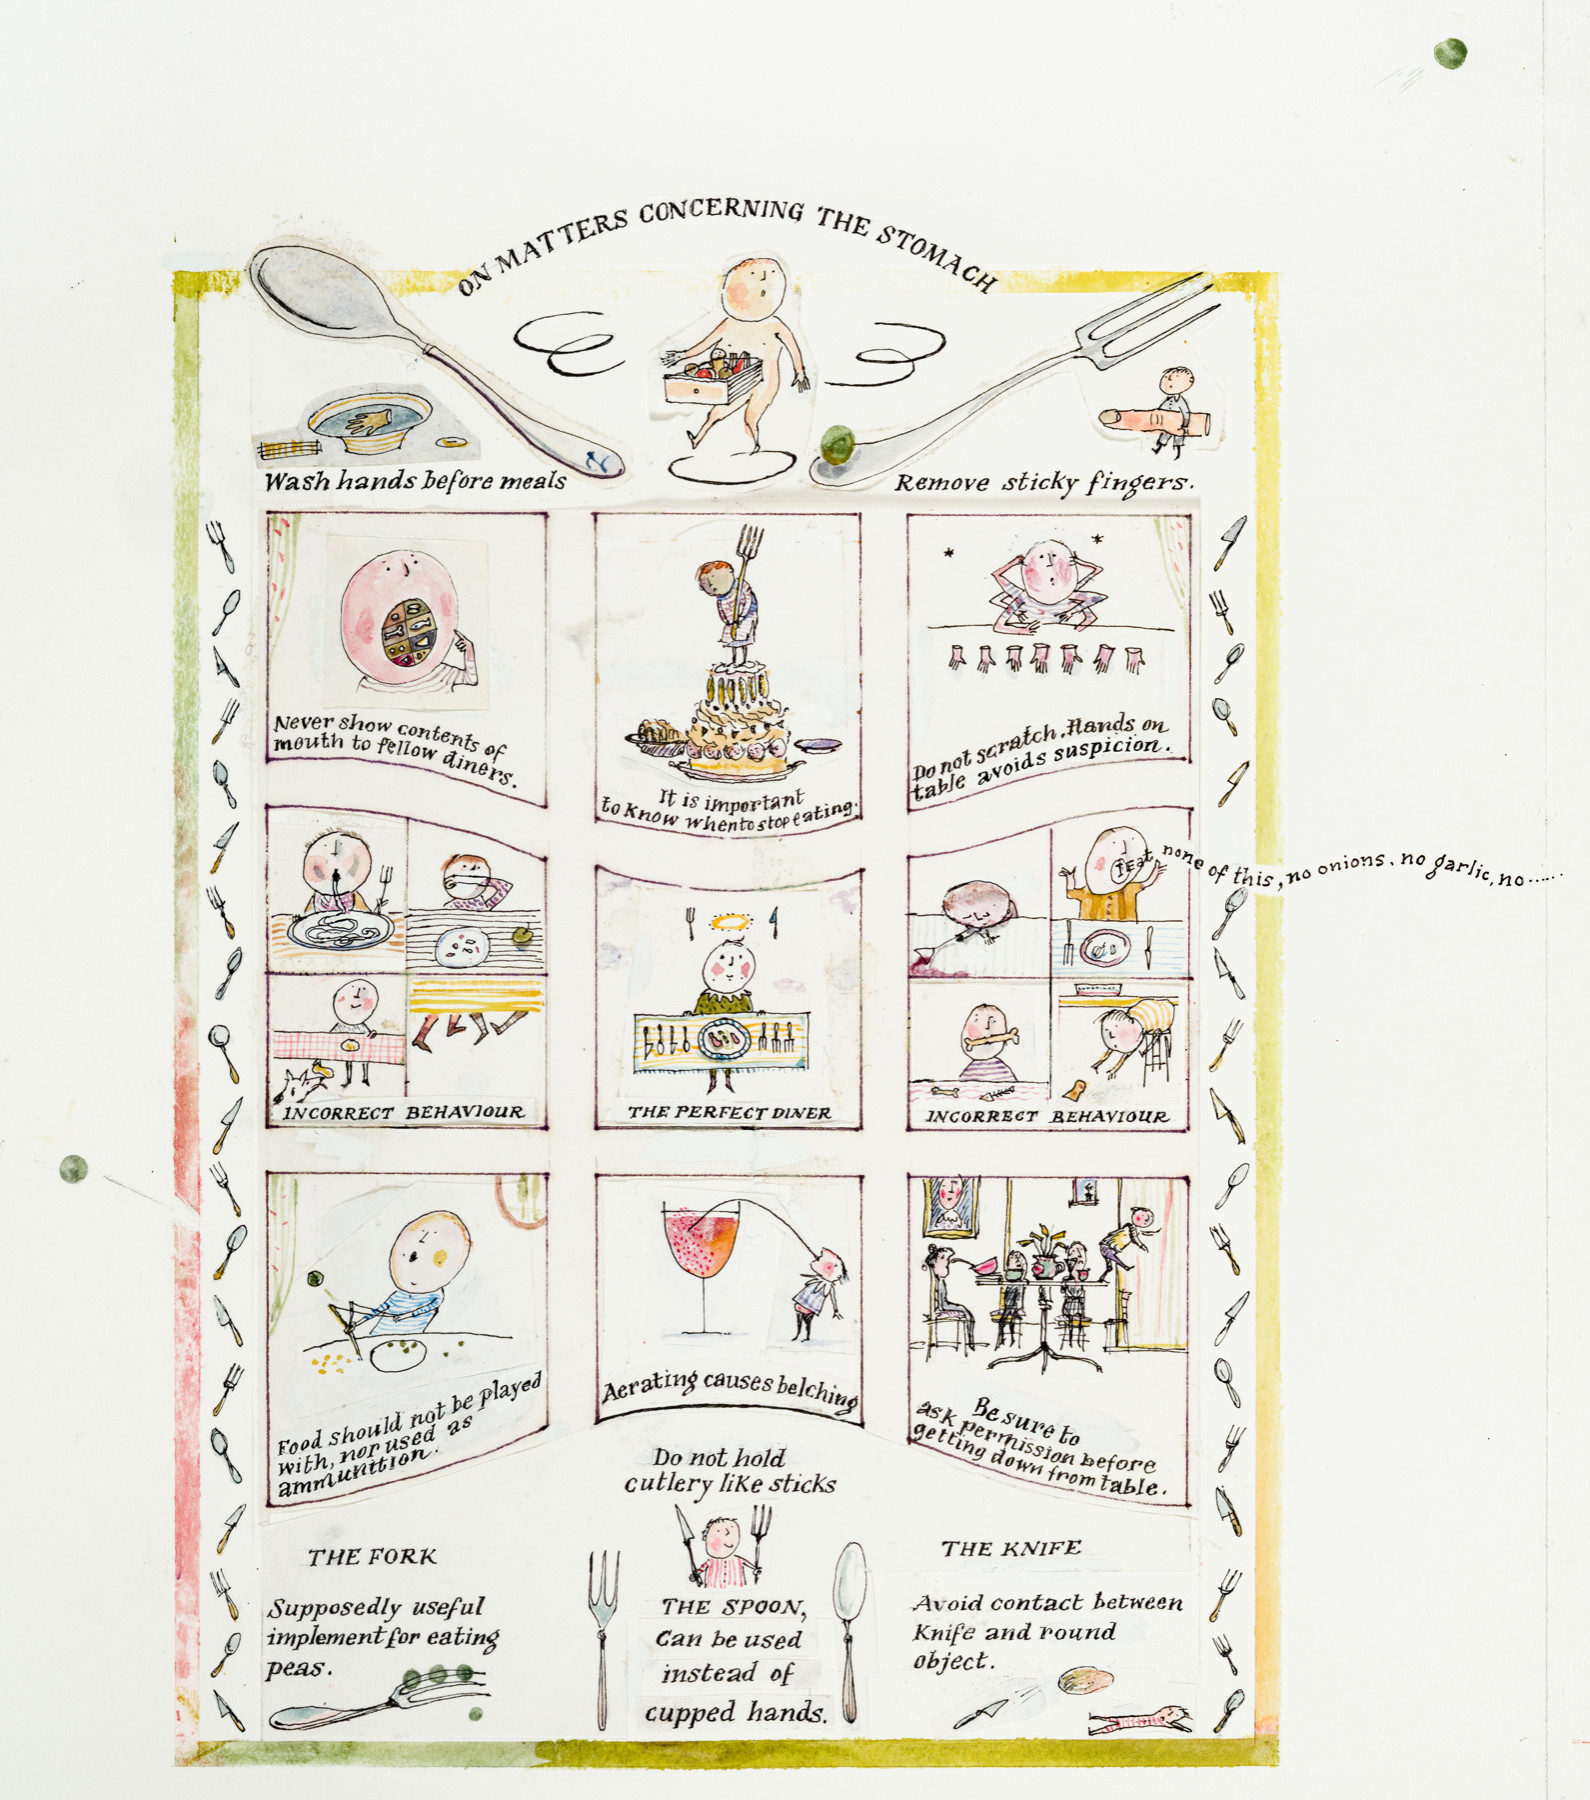 ON MATTERS CONCERNING THE STOMACH
Wash hands before meals
Remove sticky fingers.
Never show contents of
mouth to fellow diners.
It is important
to Know when to stop eating.
Do not scratch. Hands on
table avoids suspicion.
I eat none of this, no onions, no garlic, no.....
INCORRECT BEHAVIOUR
THE PERFECT DINER
INCORRECT BEHAVIOUR
Food should not be played
with, nor used as
ammunition.
Aerating causes belching
Be sure to
ask permission before
getting down from table.
Do not hold
cutlery like sticks
THE FORK
Supposedly useful
implement for eating
peas.
THE SPOON,
Can be used
instead of
cupped hands.
THE KNIFE
Avoid contact between
Knife and round
object.